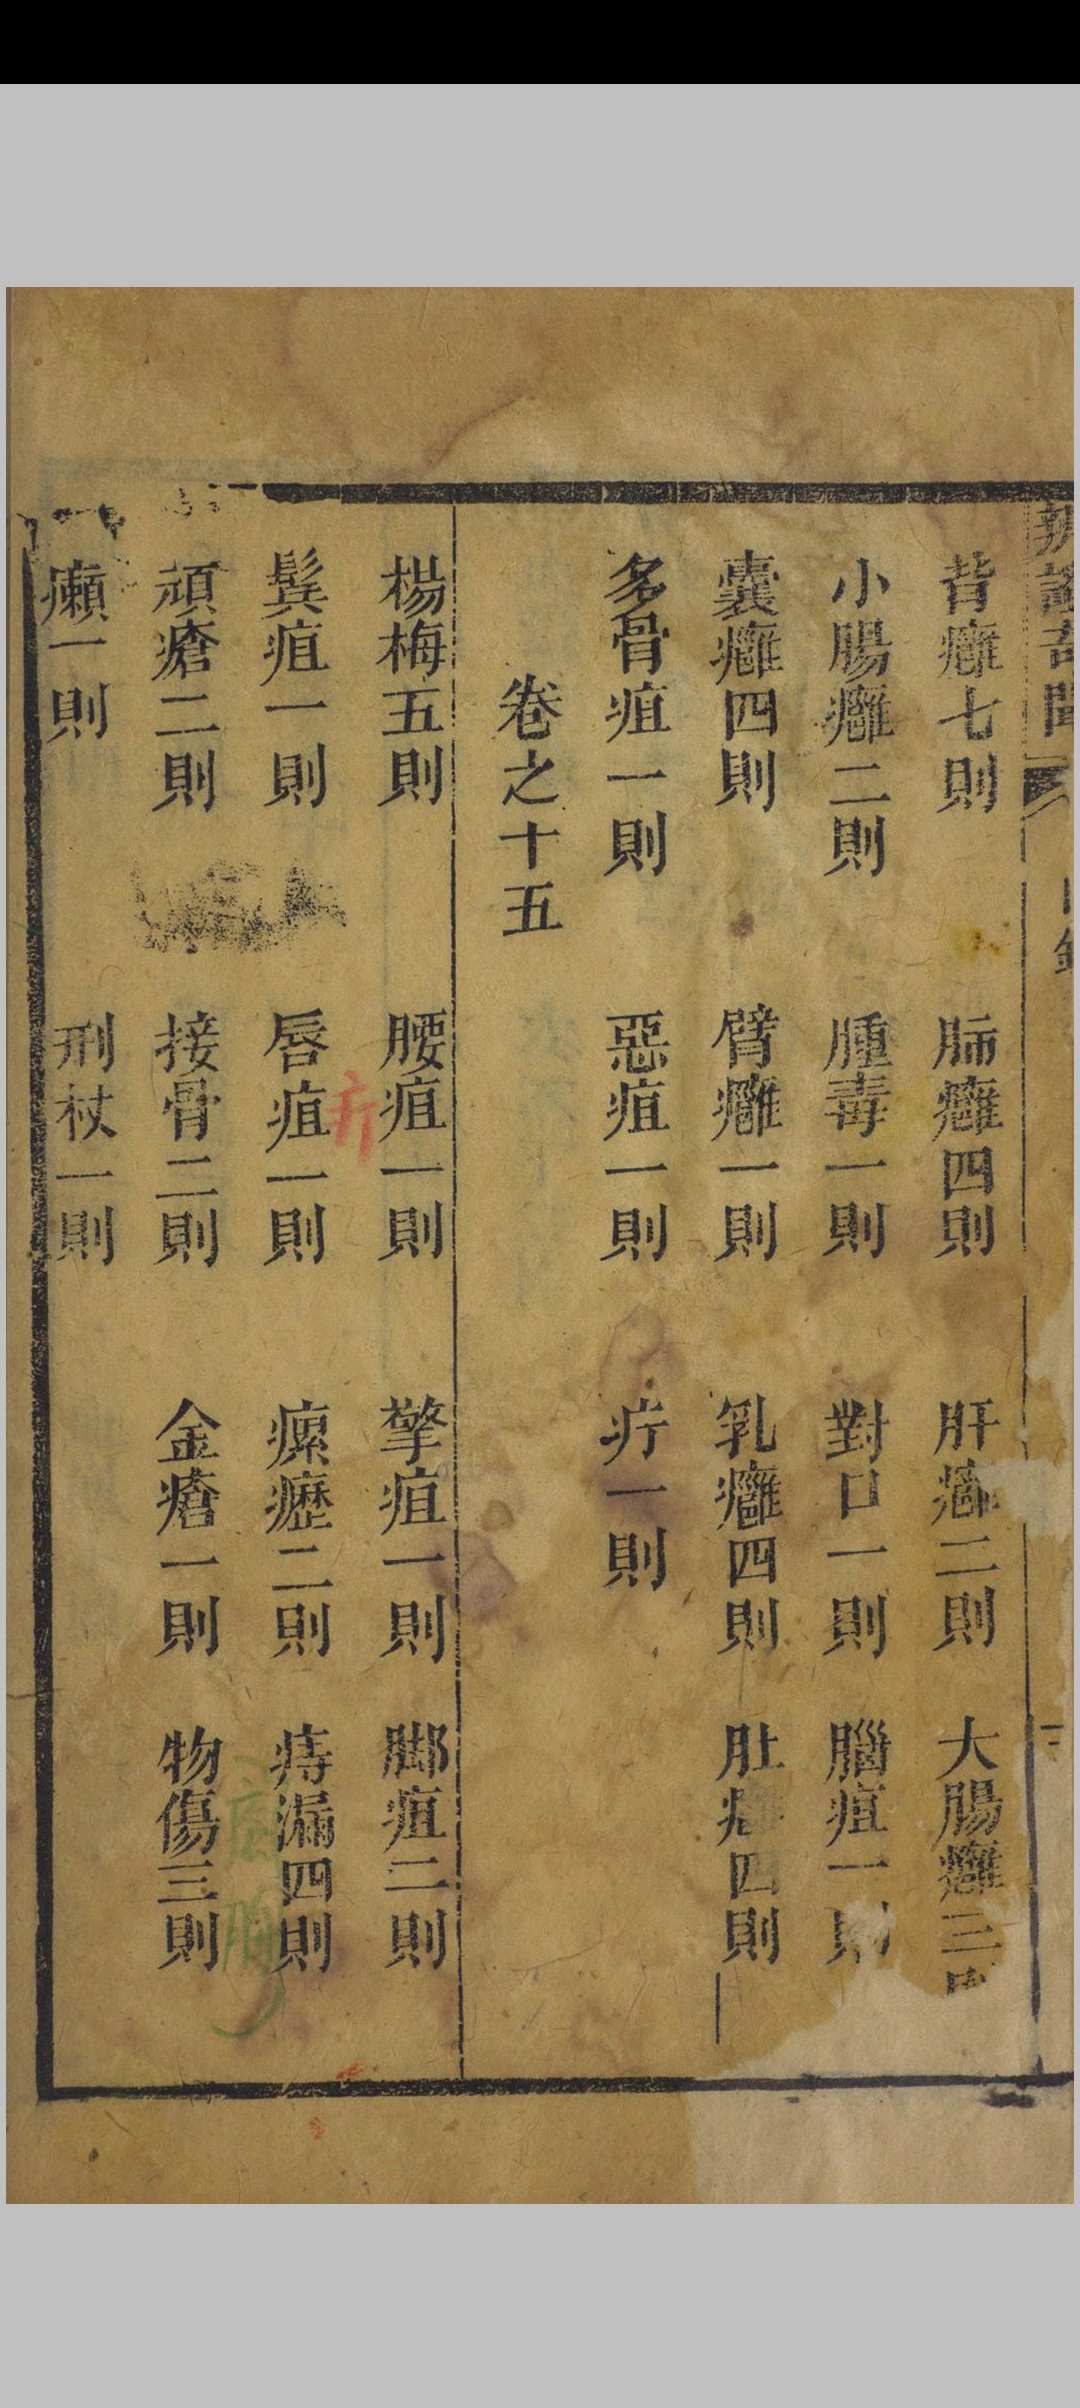 辨證奇聞 目錄
背癰七則 肺癰四則 肝癰二則 大腸癰三則
小腸癰二則 腫毒一則 對口一則 腦疽一則
囊癰四則 臂癰一則 乳癰四則 肚癰四則
多骨疽一則 惡疽一則 疔一則
卷之十五
楊梅五則 腰疽一則 擎疽一則 脚疽二則
疔
鬂疽一則 唇疽一則 瘰癧二則 痔漏四則
頑瘡二則 接骨二則 金瘡一則 物傷三則
癩一則 刑杖一則